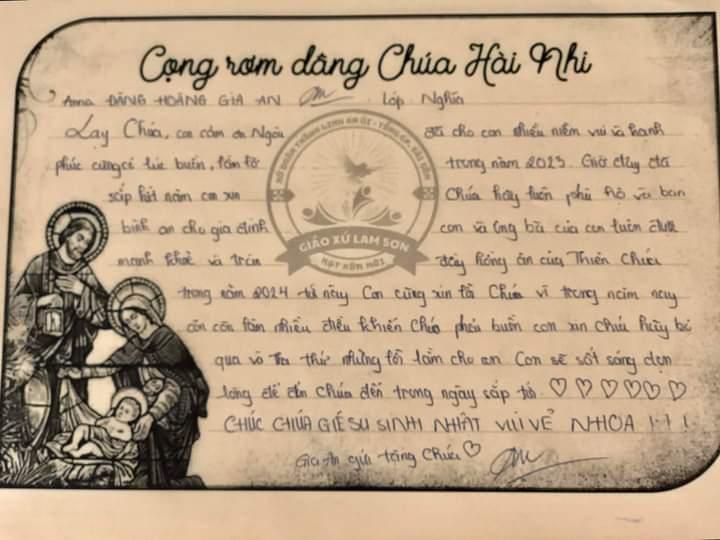 Cọng rơm dâng Chúa Hài Nhi
Anna ĐẶNG HOÀNG GIA AN Lớp Nghĩa
Lạy Chúa, con cảm ơn Ngài đã cho con nhiều niềm vui và hạnh
phúc cũng có lúc buồn, lầm lỡ trong năm 2023. Giờ đây đã
sắp hết năm con xin Chúa hãy luôn phù hộ và ban
bình an cho gia đình con và ông bà của con luôn được
mạnh khoẻ và tràn đầy hồng ân của Thiên Chúa
trong năm 2024 tới này Con cũng xin lỗi Chúa vì trong năm nay
còn làm nhiều điều khiến Chúa phải buồn con xin Chúa hãy bỏ
qua và tha thứ những lỗi lầm cho an Con sẽ sốt sáng dọn
lòng để đón Chúa đến trong ngày sắp tới ♡ ♡ ♡ ♡ ♡ ♡
CHÚC CHÚA GIÊSU SINH NHẬT VUI VẺ NHOA !!!
Gia An gửi tặng Chúa ♡
XỨ ĐOÀN THÁNH LINH
GIÁO XỨ LAM SƠN
HẠT HÓC MÔN